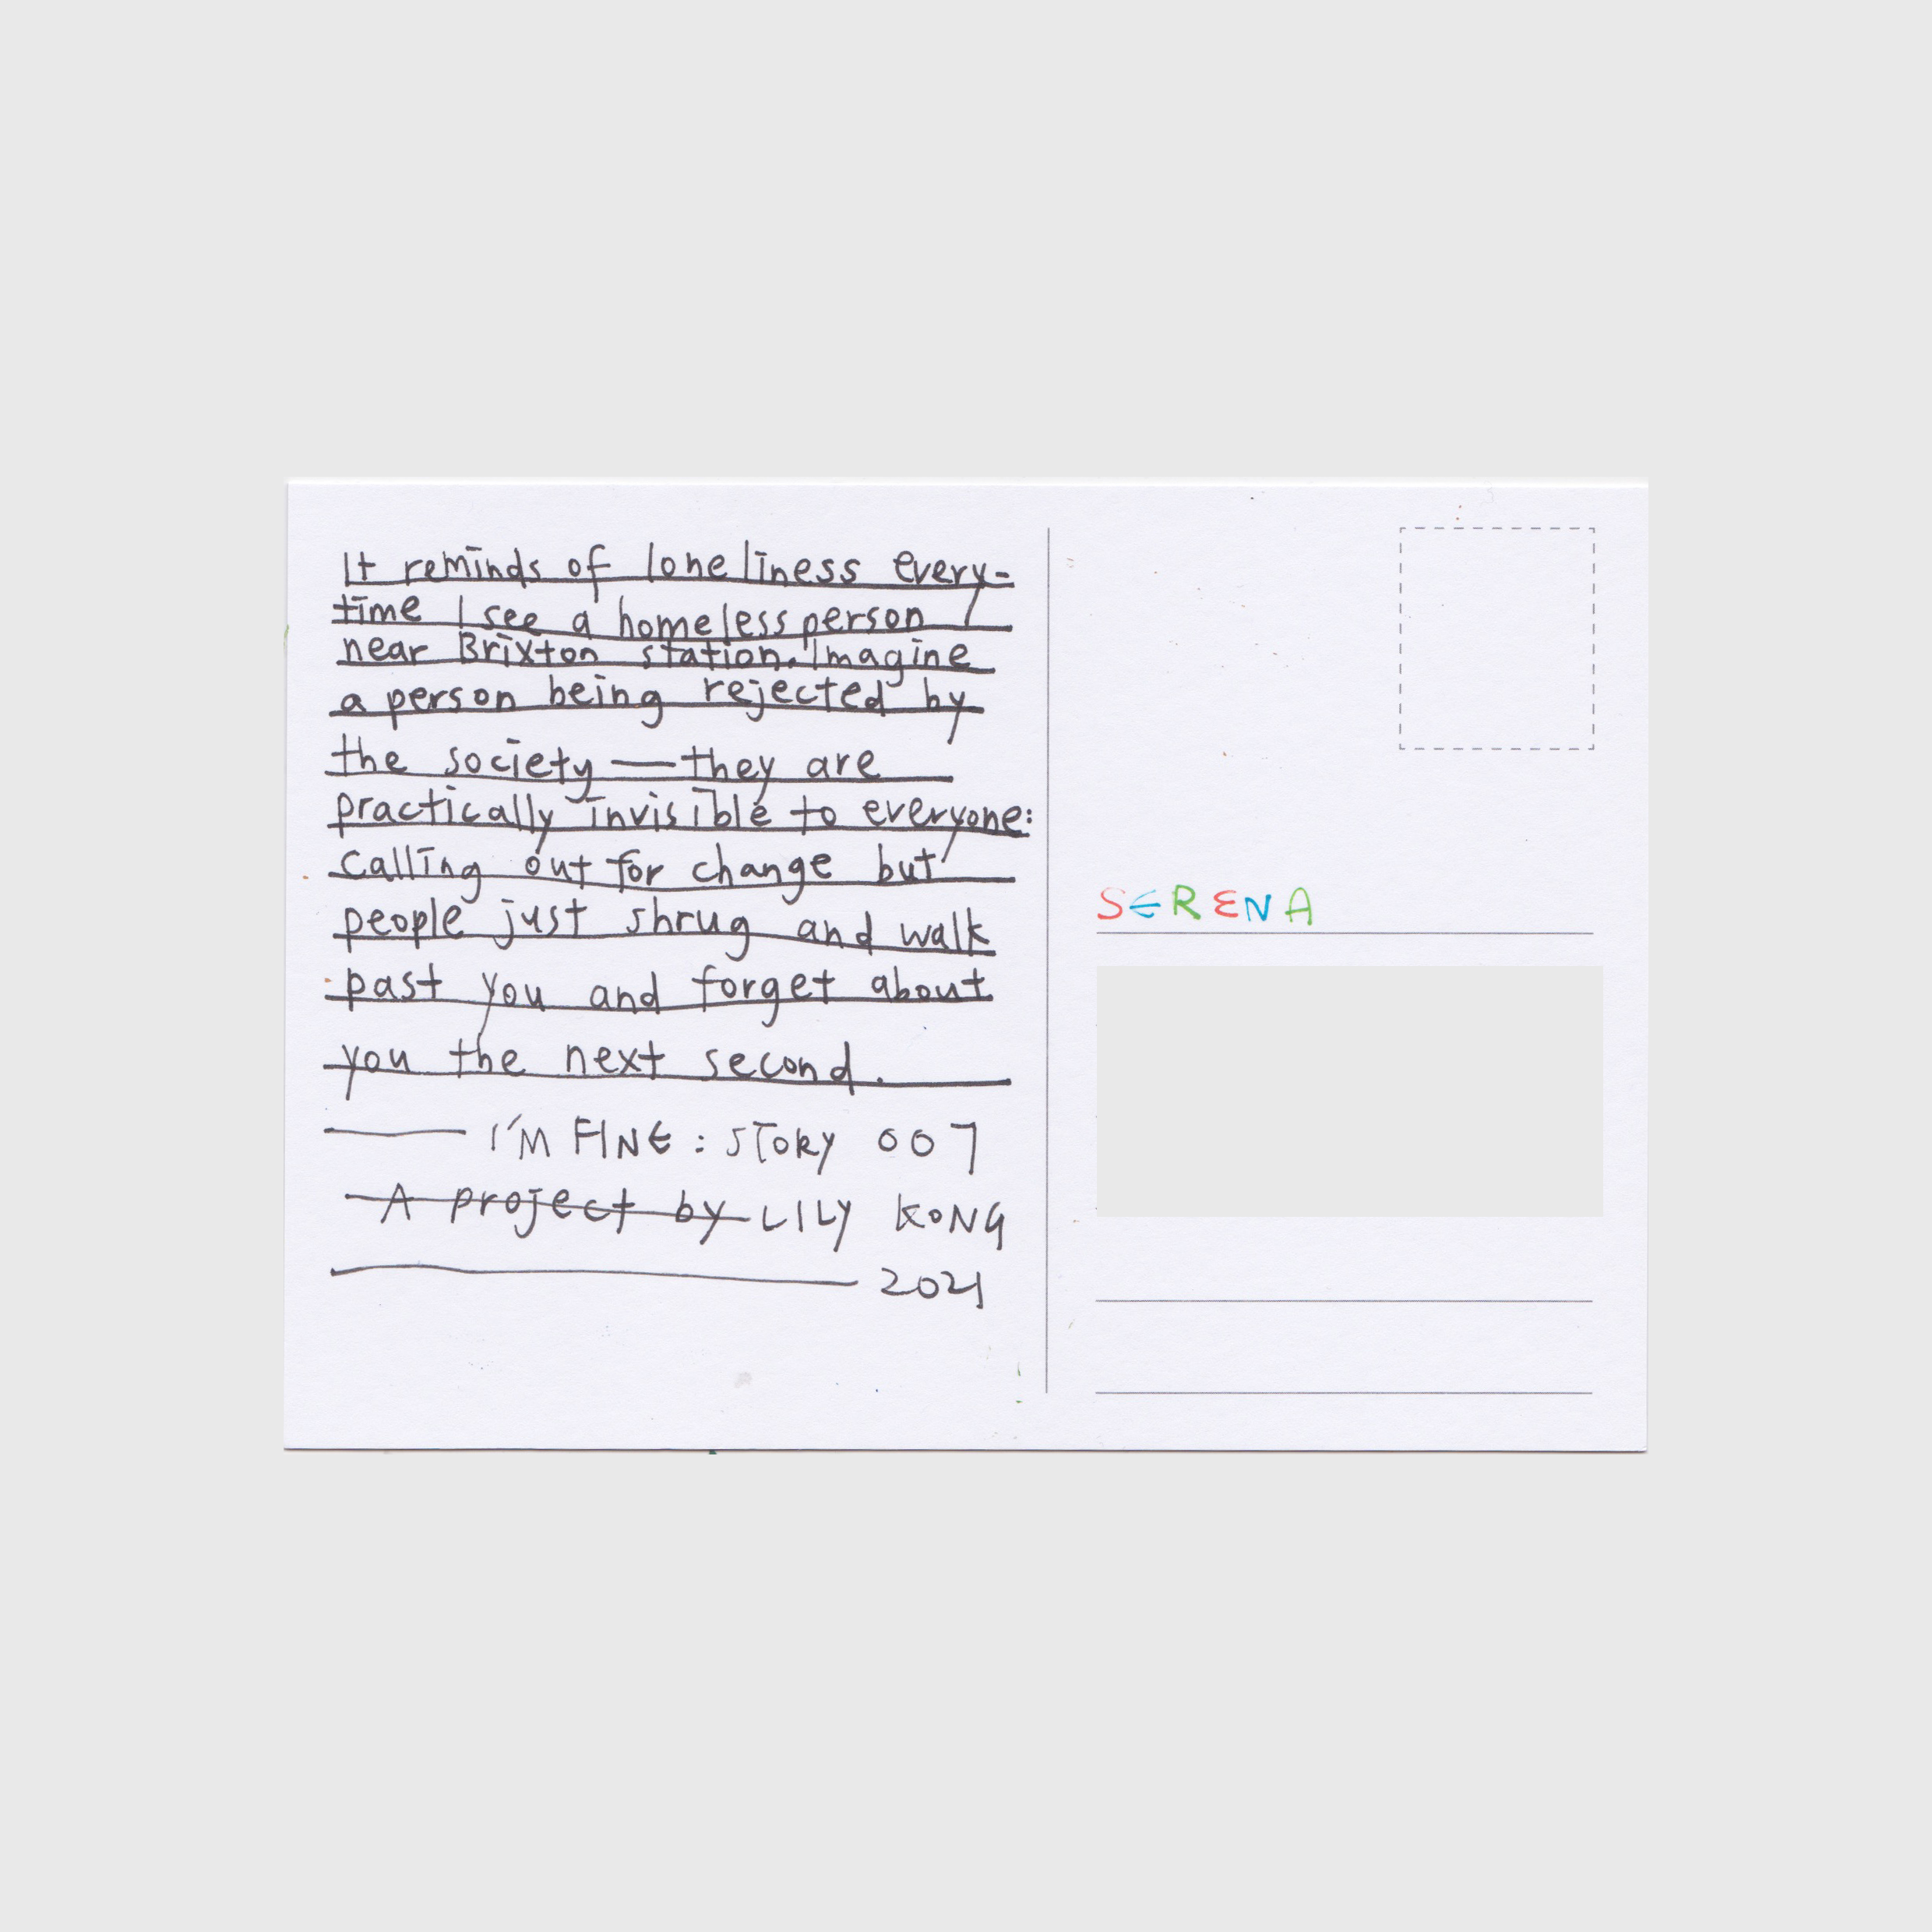 It reminds of loneliness every-
time I see a homeless person
near Brixton station. Imagine
a person being rejected by
the society — they are
practically invisible to everyone:
calling out for change but
people just shrug and walk
past you and forget about
you the next second.
I'M FINE: STORY 007
A project by LILY KONG
2021
SERENA